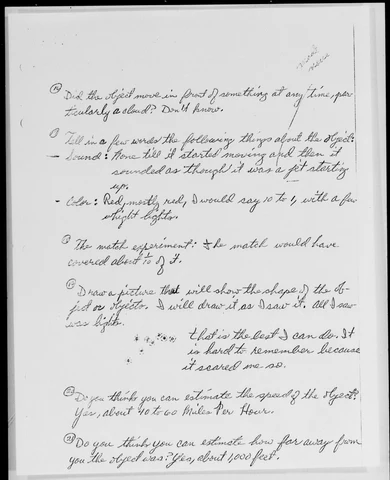 Did the object move in front of something at any time, par
ticularly a cloud? Don't know.
Tell in a few words the following things about the object:
- Sound: None till it started moving and then it
sounded as though it was a jet starting
up.
- Color: Red, mostly red, I would say 10 to 1, with a few
whight lights.
The match experiment: the match would have
covered about 1/10 of it.
Draw a picture that will show the shape of the ob-
ject or objects. I will draw it as I saw it. All I saw
was lights.
that is the best I can do. It
is hard to remember because
it scared me so.
Do you think you can estimate the speed of the object?
Yes, about 40 to 60 Miles Per Hour.
Do you think you can estimate how far away from
you the object was? Yes, about 1,000 feet.